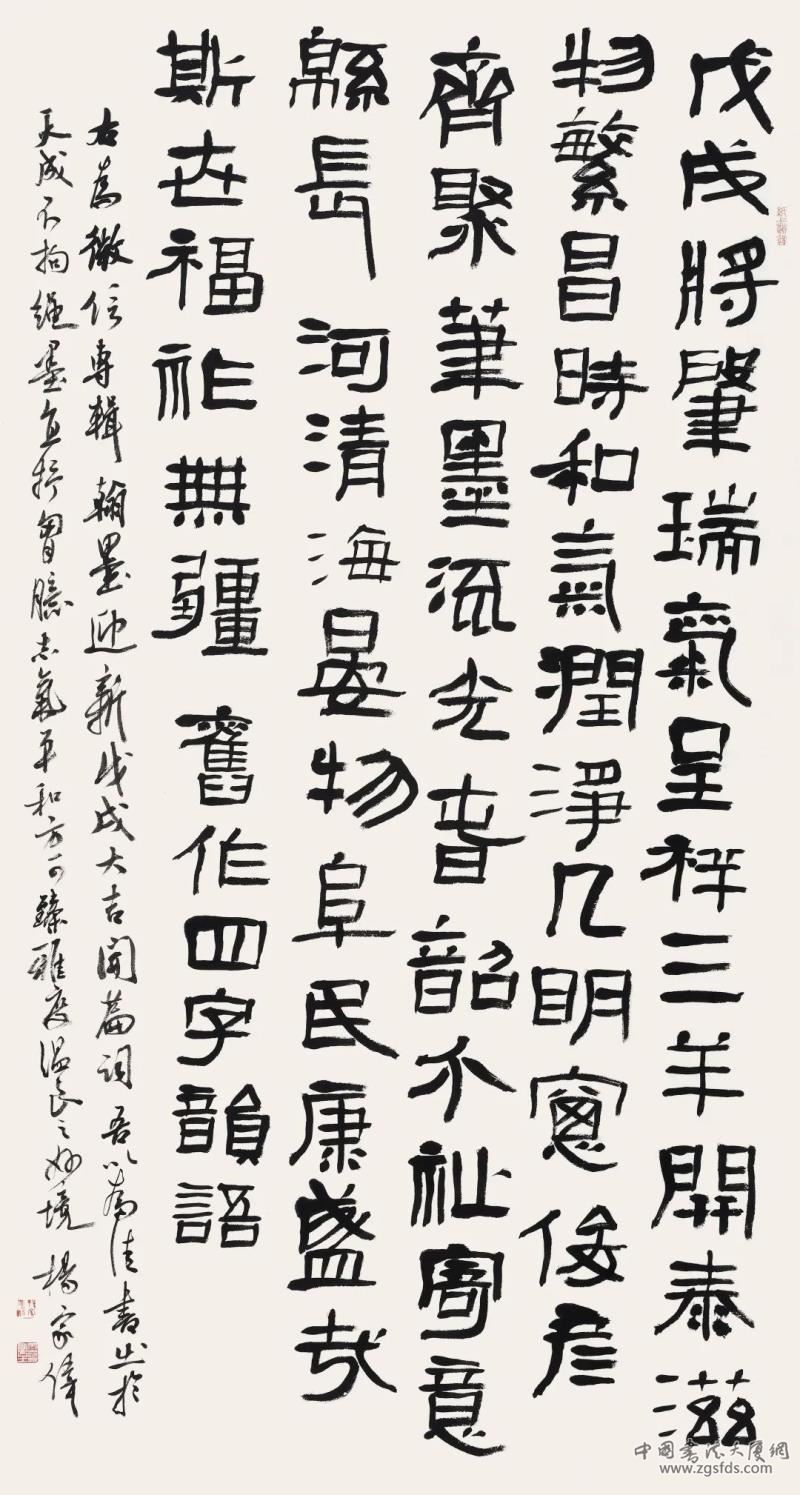 戊戌將肇瑞氣呈祥三羊開泰滋
物繁昌時和氣潤淨几明窗俊彦
齊聚筆墨流光耆韶介祉寄意
緜長河清海晏物阜民康盛哉
斯世福祚無疆舊作四字韻語
右為微信專輯翰墨迎新戊戌大吉開篇詞吾以為佳書出於
天成不拘繩墨直抒胸臆志氣平和方可臻雅度溫良之妙境楊家偉
中國書法大廈網
www.zgsfds.com